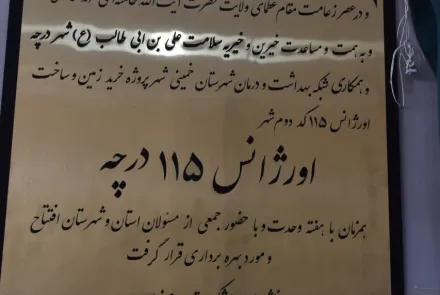 و در عصر زعامت مقام عظمای ولایت حضرت آیت الله
و به همت و مساعدت خیرین و خیریه سلامت علی بن ابی طالب (ع) شهر درچه
و همکاری شبکه بهداشت و درمان شهرستان خمینی شهر پروژه خرید زمین و ساخت
اورژانس ۱۱۵ کد دوم شهر
اورژانس ۱۱۵ درچه
همزمان با هفته وحدت و با حضور جمعی از مسئولان استان و شهرستان افتتاح
و مورد بهره برداری قرار گرفت